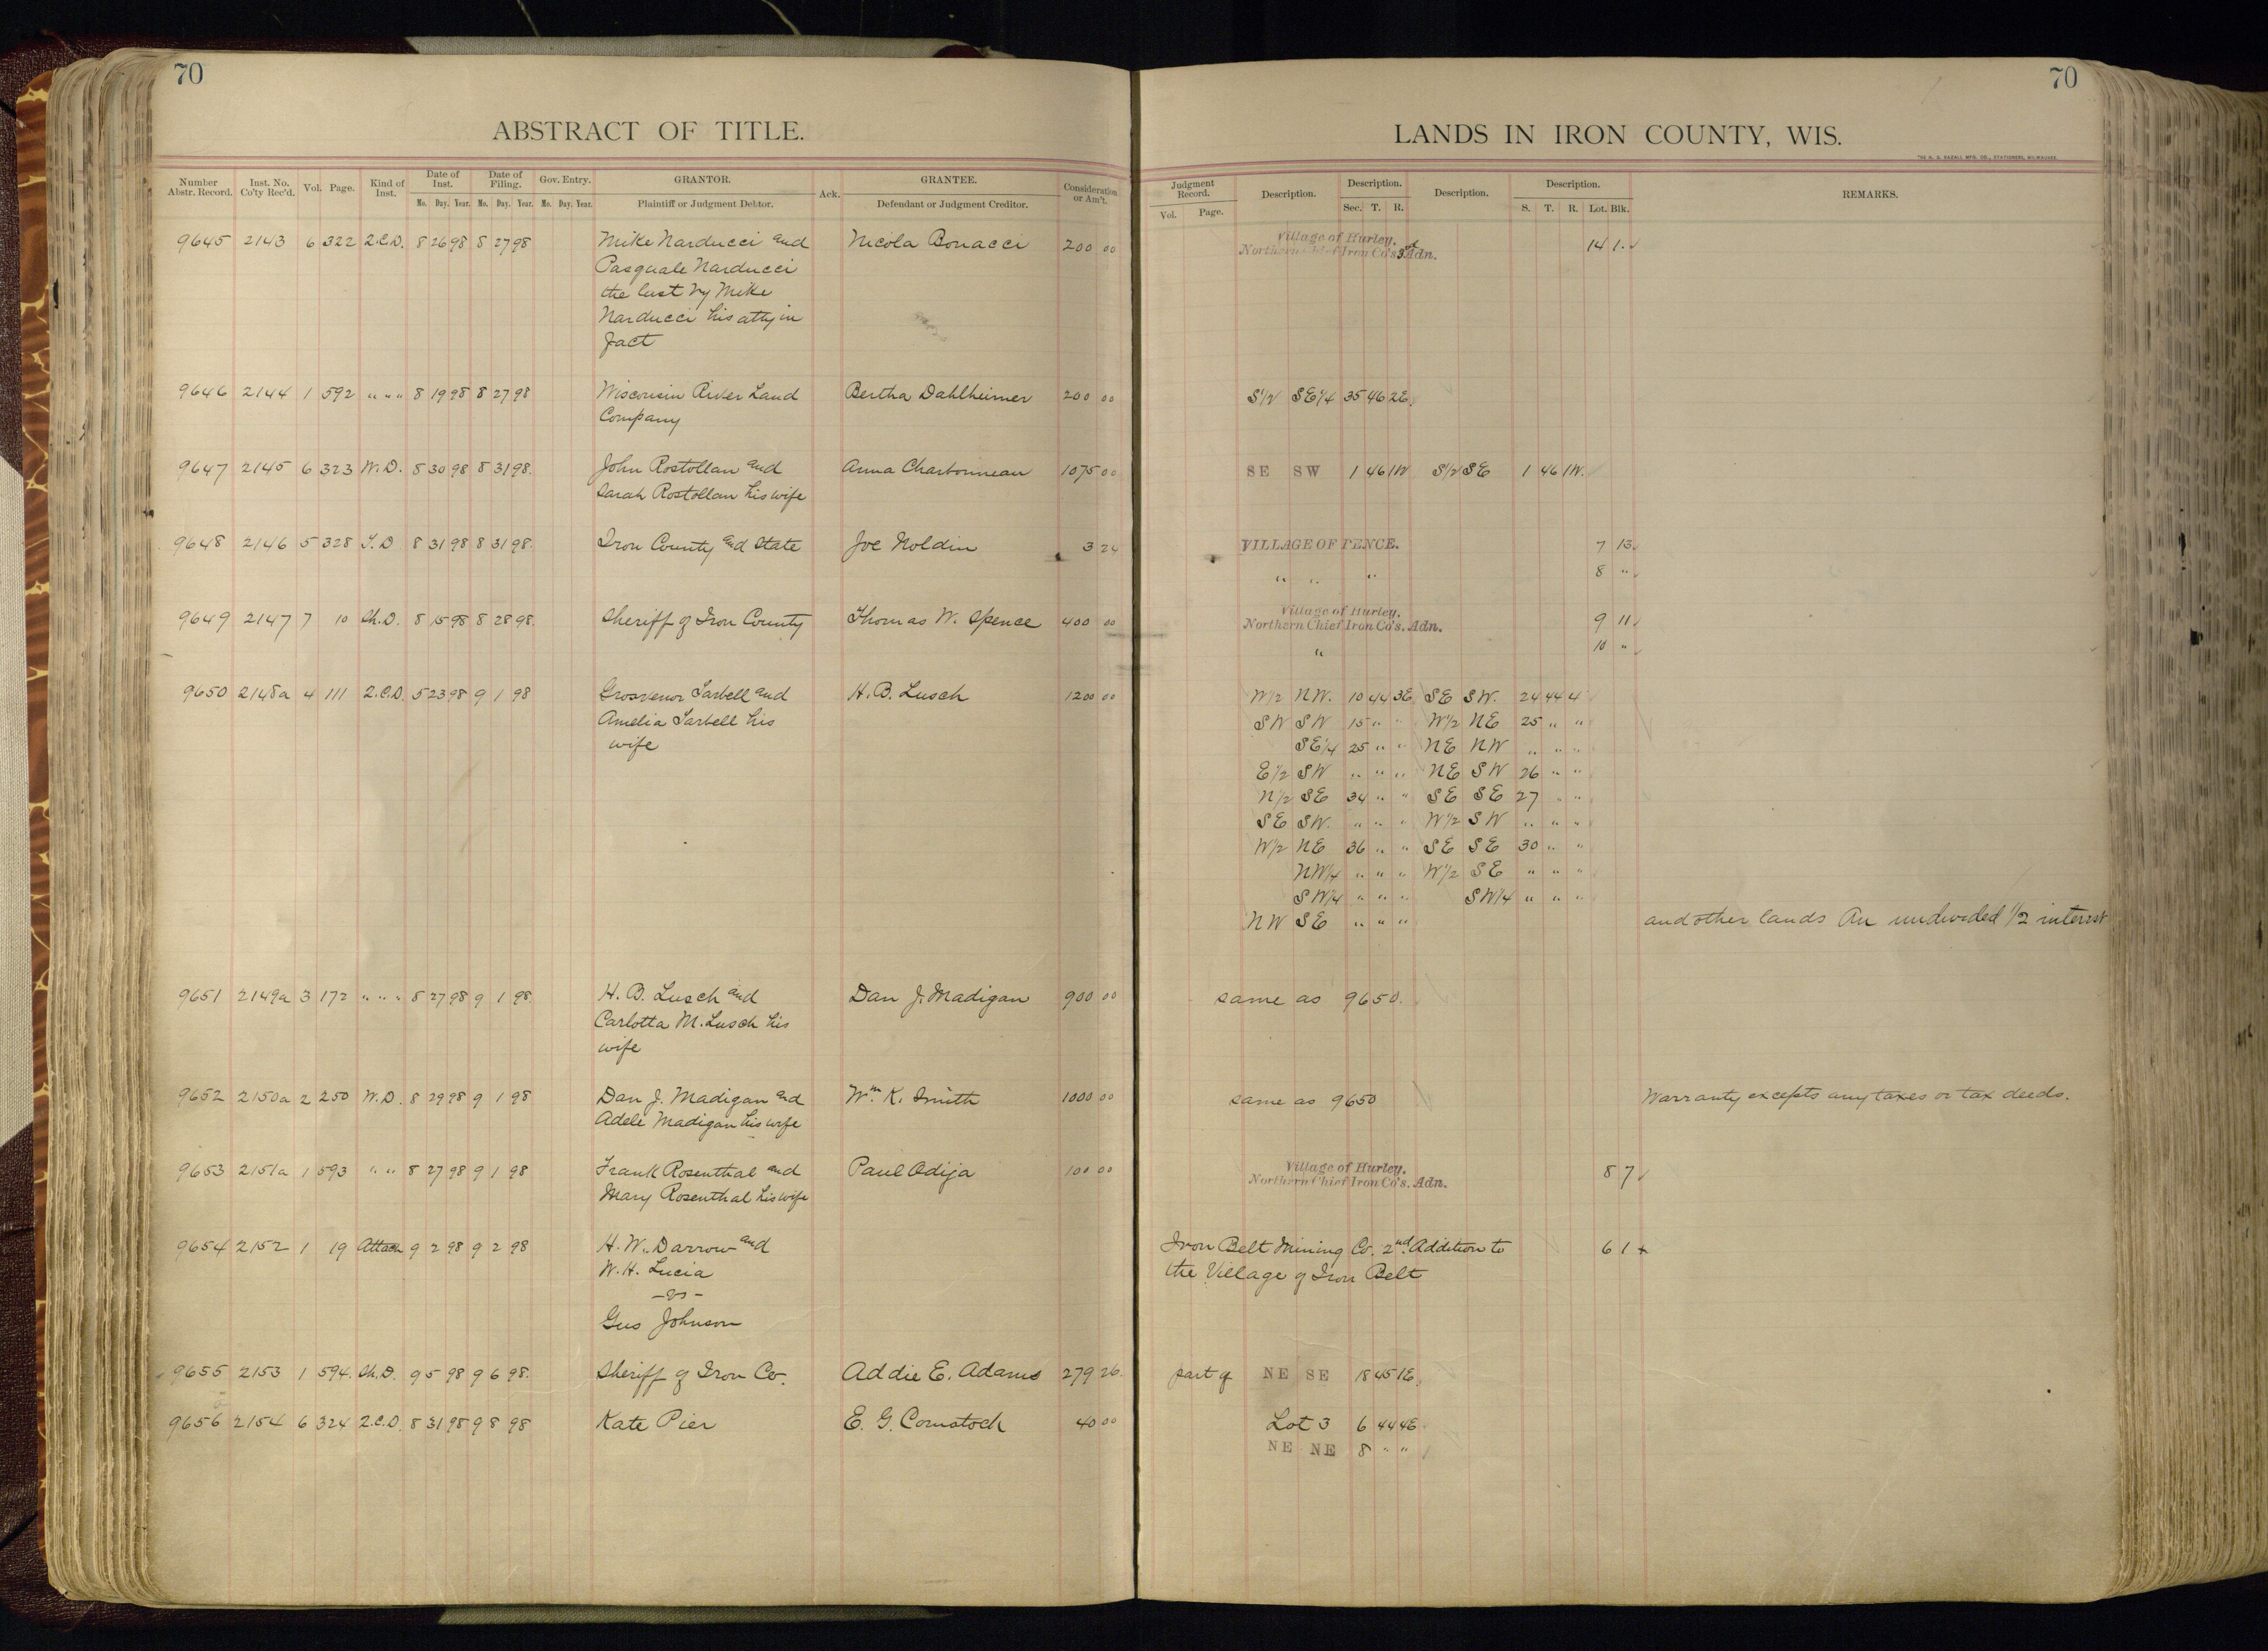 70
ABSTRACT OF TITLE.
Number Abstr. Record. Inst. No. Co'ty Rec'd. Vol. Page. Kind of Inst. Date of Inst. Date of Filing. Gov. Entry. GRANTOR. Ack. GRANTEE. Consideration or Am't.
Mo. Day. Year. Mo. Day. Year. Mo. Day. Year. Plaintiff or Judgment Debtor. Defendant or Judgment Creditor.
9645 2143 6 322 Q.C.D. 8 26 98 8 27 98 Mike Narducci and Nicola Bonacci 200 00
Pasquale Narducci
the last by Mike
Narducci his atty in
fact
9646 2144 1 592 " " " 8 19 98 8 27 98 Wisconsin River Land Bertha Dahlheimer 200 00
Company
9647 2145 6 323 W.D. 8 30 98 8 31 98. John Rostollan and Anna Charbonneau 1075 00
Sarah Rostollan his wife
9648 2146 5 328 T.D 8 31 98 8 31 98. Iron County and State Joe Noldin 3 24
9649 2147 7 10 Sh.D. 8 15 98 8 28 98. Sheriff of Iron County Thomas W. Spence 400 00
9650 2148a 4 111 Q.C.D. 5 23 98 9 1 98 Grosvenor Tarbell and H. B. Lusch 1200 00
Amelia Tarbell his
wife
9651 2149a 3 172 " " " 8 27 98 9 1 98. H. B. Lusch and Dan J. Madigan 900 00
Carlotta M. Lusch his
wife
9652 2150a 2 250 W.D. 8 29 98 9 1 98 Dan J. Madigan and Wm K. Smith 1000 00
Adele Madigan his wife
9653 2151a 1 593 " " 8 27 98 9 1 98 Frank Rosenthal and Paul Odija 100 00
Mary Rosenthal his wife
9654 2152 1 19 Attach 9 2 98 9 2 98 H. W. Darrow and
W. H. Lucia
-vs-
Gus Johnson
9655 2153 1 594. Sh.D. 9 5 98 9 6 98. Sheriff of Iron Co. Addie E. Adams 279 26.
9656 2154 6 324 Q.C.D. 8 31 98 9 8 98 Kate Pier E. G. Comstock 40 00
70
LANDS IN IRON COUNTY, WIS.
Judgment Record. Description. Description. Description. Description. REMARKS.
Vol. Page. Sec. T. R. S. T. R. Lot. Blk.
Village of Hurley.
Northern Chief Iron Co's. 3rd Adn. 14 1.
S1/2 SE1/4 35 46 2E.
SE SW 1 46 1W S1/2 SE 1 46 1W.
VILLAGE OF PENCE. 7 13
" " " 8 "
Village of Hurley.
Northern Chief Iron Co's. Adn. 9 11
" 10 "
W1/2 NW. 10 44 3E SE SW. 24 44 4
SW SW 15 " " W1/2 NE 25 " "
SE1/4 25 " " NE NW " " "
E1/2 SW " " " NE SW 26 " "
N1/2 SE 34 " " SE SE 27 " "
SE SW. " " " W1/2 SW " " "
W1/2 NE 36 " " SE SE 30 " "
NW1/4 " " " W1/2 SE " " "
SW1/4 " " " SW1/4 " " "
NW SE " " " and other lands An undivided 1/2 interest
same as 9650.
same as 9650 Warranty excepts any taxes or tax deeds.
Village of Hurley.
Northern Chief Iron Co's. Adn. 8 7
Iron Belt Mining Co. 2nd Addition to 6 1
the Village of Iron Belt
part of NE SE 18 45 1E.
Lot 3 6 44 4E
NE NE 8 " "